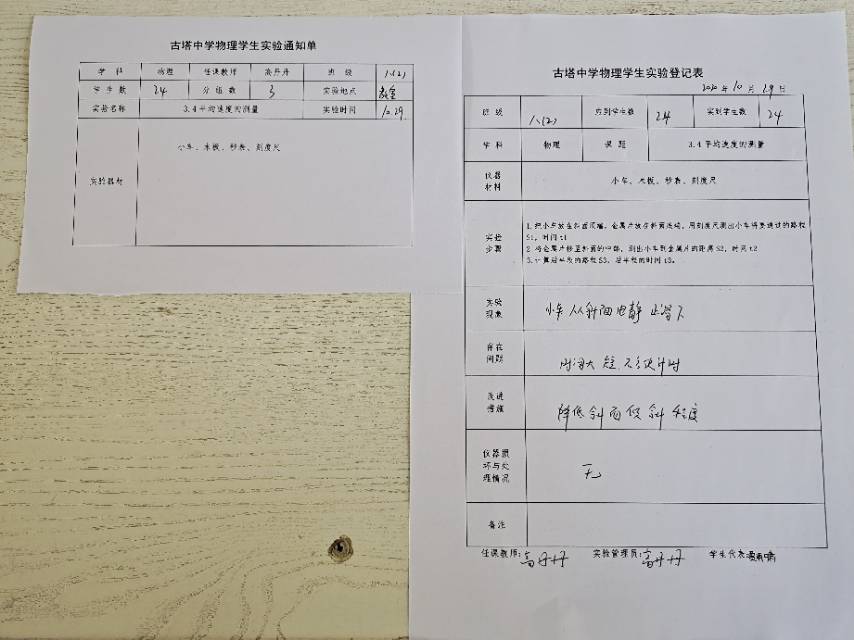 古塔中学物理学生实验通知单
学 科 物理 任课教师 高丹丹 班 级 八(2)
学 生 数 24 分 组 数 3 实验地点
实验名称 3.4平均速度的测量 实验时间 10.29
实验器材 小车、木板、秒表、刻度尺
古塔中学物理学生实验登记表
2020 年 10 月 29 日
班 级 八(2) 应到学生数 24 实到学生数 24
学 科 物理 课 题 3.4 平均速度的测量
仪器
材料
小车、木板、秒表、刻度尺
实验
步骤
1.把小车放在斜面顶端，金属片放在斜面底端，用刻度尺测出小车将要通过的路程
S1，时间 t1
2.将金属片移至斜面的中部，测出小车到金属片的距离 S2，时间 t2
3.计算后半段的路程 S3，后半段的时间 t3。
实验
现象
小车从斜面由静止滑下
存在
问题
时间太短，不方便计时
改进
措施
降低斜面倾斜程度
仪器损
坏与处
理情况
无
备注
任课教师：高丹丹 实验管理员：高丹丹 学生代表：